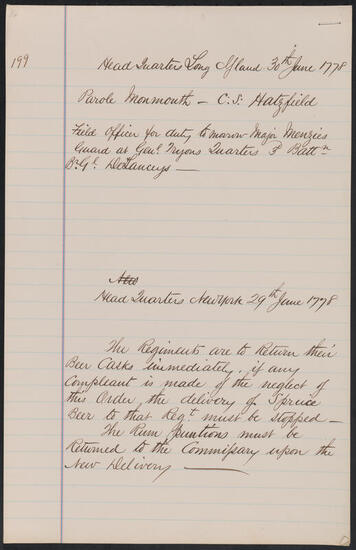 199
Head Quarters Long Island 30th June 1778
Parole Monmouth – C.S. Hatzfield
Field Officer for duty to morow Major Menzies
Guard at Genl. Tryons Quarters 3d Battn
Br. Gl. DeLanceys —
New
Head Quarters New York 29th June 1778
The Regiments are to Return their
Beer Casks immediately; if any
Compleant is made of the neglect of
this Order, the delivery of Spruce
Beer to that Regt. must be stopped —
The Rum puntions must be
Returned to the Commissary upon the
New Delivery —